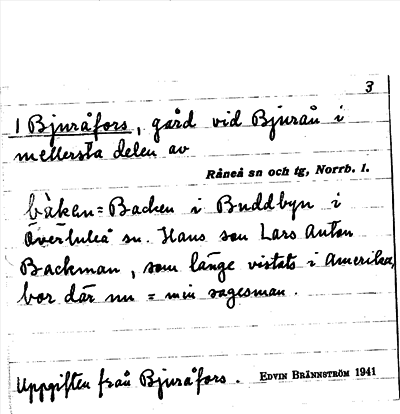 3
1 Bjuråfors, gård vid Bjuraån i
mellersta delen av
Råneå sn och tg, Norrb. l.
bàken = Backen i Buddbyn i
Överluleå sn. Hans son Lars Anton
Backman, som länge vistats i Amerika,
bor där nu = min sagesman.
Uppgiften från Bjuråfors. EDVIN BRÄNNSTRÖM 1941